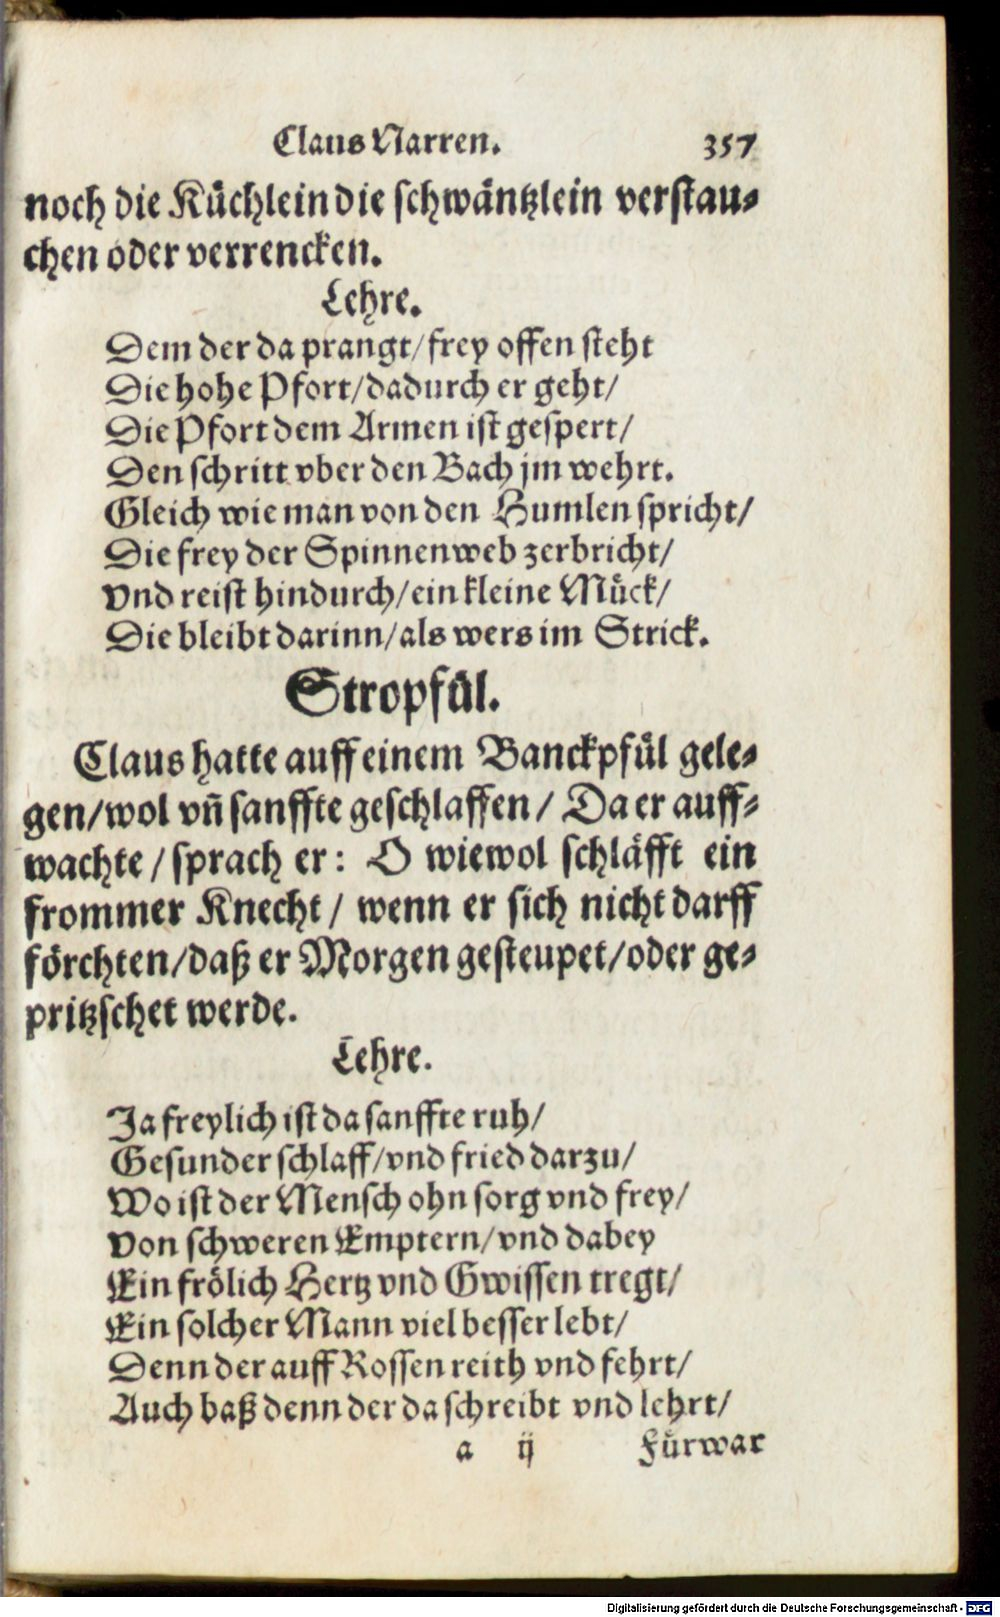 Claus Narren. 357
noch die Küchlein die schwäntzlein verstau-
chen oder verrencken.
Lehre.
Dem der da prangt/frey offen steht
Die hohe Pfort/dadurch er geht/
Die Pfort dem Armen ist gespert/
Den schritt vber den Bach jm wehrt.
Gleich wie man von den Humlen spricht/
Die frey der Spinnenweb zerbricht/
Vnd reist hindurch/ein kleine Mück/
Die bleibt darinn/als wers im Strick.
Stropfül.
Claus hatte auff einem Banckpfül gele-
gen/wol vñ sanffte geschlaffen/ Da er auff-
wachte/sprach er: O wiewol schläfft ein
frommer Knecht/ wenn er sich nicht darff
förchten/daß er Morgen gesteupet/oder ge-
pritzschet werde.
Lehre.
Ja freylich ist da sanffte ruh/
Gesunder schlaff/vnd fried darzu/
Wo ist der Mensch ohn sorg vnd frey/
Von schweren Emptern/vnd dabey
Ein frölich Hertz vnd Gwissen tregt/
Ein solcher Mann viel besser lebt/
Denn der auff Rossen reith vnd fehrt/
Auch baß denn der da schreibt vnd lehrt/
a ij Fürwar
Digitalisierung gefördert durch die Deutsche Forschungsgemeinschaft - DFG